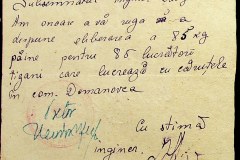 Subsemnatul inginer
Am onoare a vă ruga să a
dispune eliberarea a 85 kg
pâine pentru 85 lucrători
țigani care lucrează cu căruțele
în com. Domanovca
Cu stimă
inginer